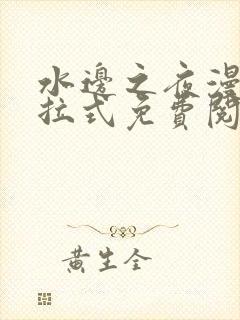 水邊之夜漫
拉式免費閱
黃生全